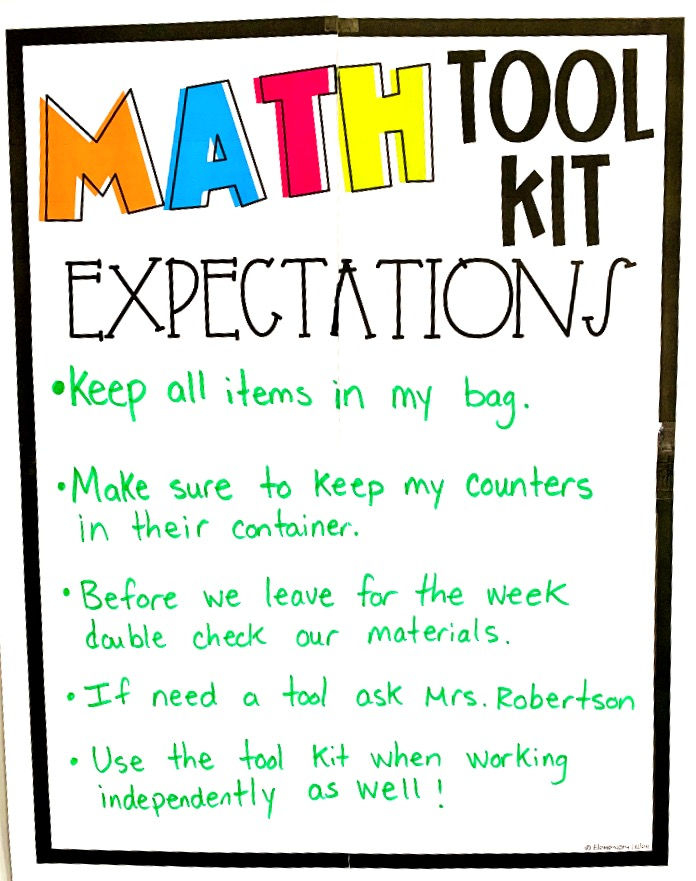 MATH TOOL
KIT
EXPECTATIONS
•Keep all items in my bag.
•Make sure to keep my counters
in their container.
•Before we leave for the week
double check our materials.
•If need a tool ask Mrs. Robertson
•Use the tool kit when working
independently as well!